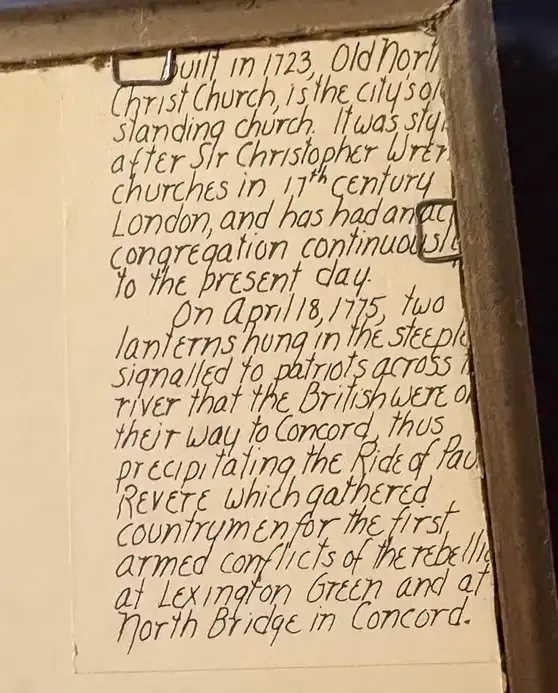 Built in 1723, Old North
Christ Church, is the city's
standing church. It was
after Sir Christopher Wren
churches in 17th century
London, and has had an
congregation continuously
to the present day.
On April 18, 1775, two
lanterns hung in the steeple
signalled to patriots across
river that the British were
their way to Concord, thus
precipitating the Ride of Paul
Revere which gathered
countrymen for the first
armed conflicts of the
at Lexington Green and at
North Bridge in Concord.